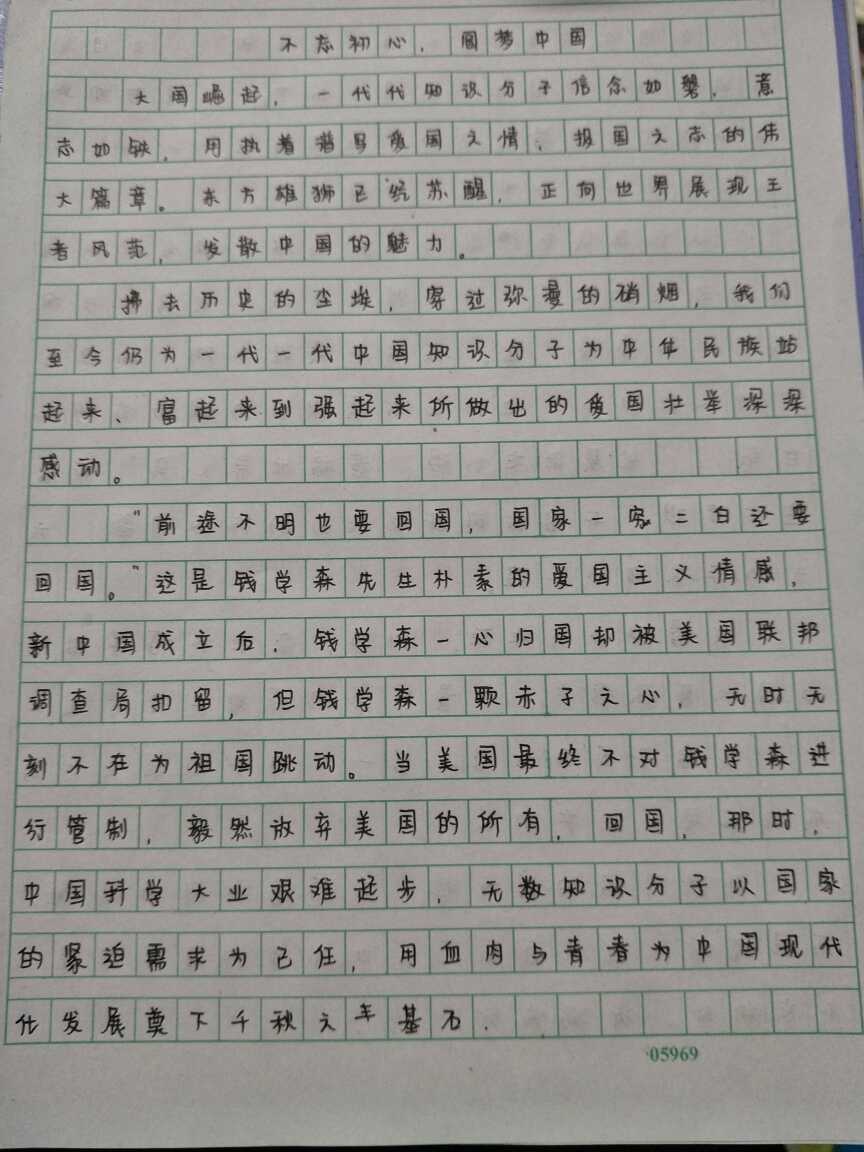 不忘初心，圆梦中国
大国崛起，一代代知识分子信念如磐，意
志如铁，用执着谱写爱国之情、报国之志的伟
大篇章。东方雄狮已经苏醒，正向世界展现王
者风范，发散中国的魅力。
拂去历史的尘埃，穿过弥漫的硝烟，我们
至今仍为一代一代中国知识分子为中华民族站
起来、富起来到强起来所做出的爱国壮举深深
感动。
“前途不明也要回国，国家一穷二白还要
回国。”这是钱学森先生朴素的爱国主义情感，
新中国成立后，钱学森一心归国却被美国联邦
调查局扣留，但钱学森一颗赤子之心，无时无
刻不在为祖国跳动。当美国最终不对钱学森进
行管制，毅然放弃美国的所有，回国，那时，
中国科学大业艰难起步，无数知识分子以国家
的紧迫需求为己任，用血肉与青春为中国现代
化发展奠下千秋之年基石.
05969